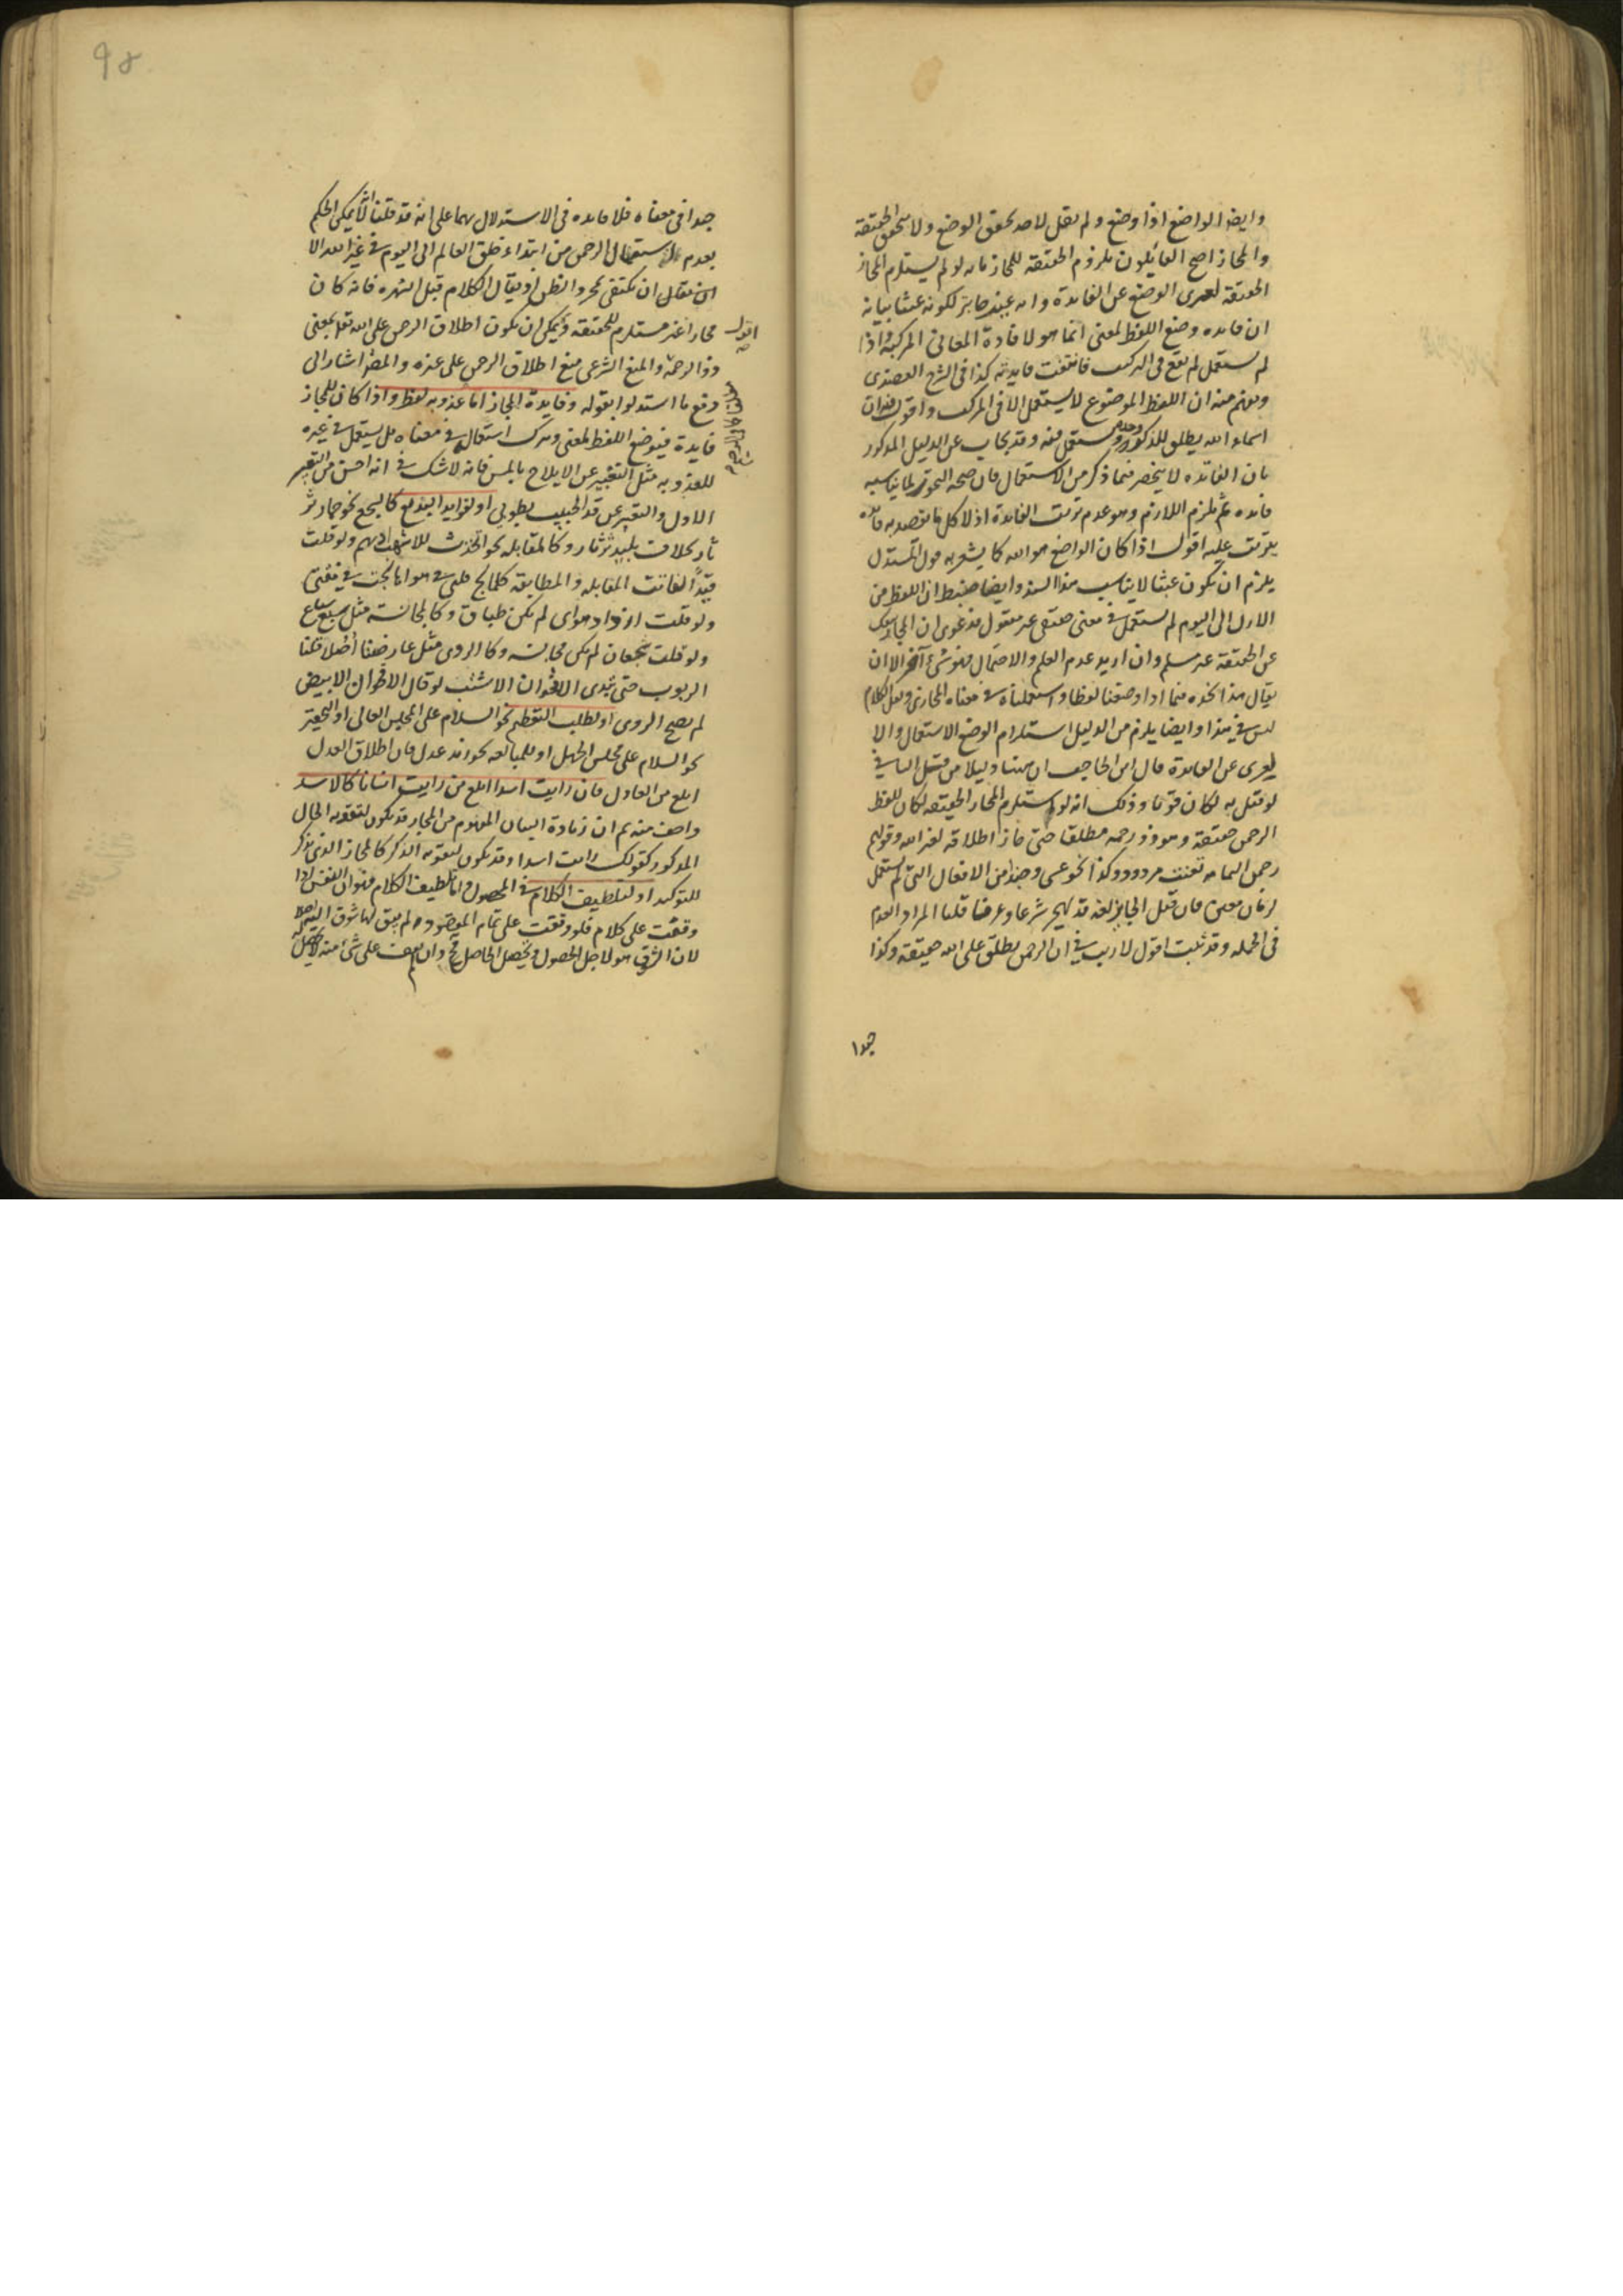 وايضا الواضع اذا وضع ولم ينقل لاحد تحقق الوضع ولا تتحقق الحقيقة
والمجاز احتج القائلون بلزوم الحقيقة للمجاز بانه لو لم يستلزم المجاز
الحقيقة لعرى الوضع عن الفايدة وانه غير جايز لكونه عبثا بيانه
ان فايده وضع اللفظ لمعنى انما هو لافادة المعانى المركبة فاذا
لم يستعمل لم يقع فى التركيب فانتفت فايدته كذا فى الشرح العضدى
ويفهم منه ان اللفظ الموضوع لا يستعمل الا فى المركب واقول
اسماء الله يطلق للذكر وحده فيستعمل فيه وقد يجاب عن الدليل المذكور
بان الفائده لا ينحصر فيما ذكر من الاستعمال فان صحة التجوز لما يناسبه
فايده ثم يلزم اللازم وهو عدم ترتب الفايدة اذ لا كل ما يقصد به فايده
يترتب عليه اقول اذا كان الواضع هو الله كما يشعر به قول المستدل
يلزم ان يكون عبثا لا يناسب هذا السند وايضا ضبط ان اللفظ من
الاول الى اليوم لم يستعمل فى معنى حقيقى غير معقول فدعوى ان المجاز ينفك
عن الحقيقة غير مسلم وان اريد عدم العلم والاحتمال فهو شئ آخر الا ان
يقال هذا نجده فيما اذا وضعنا لفظا واستعملناه فى معناه المجازى ولعل الكلام
ليس فى هذا وايضا يلزم من الدليل استلزام الوضع الاستعمال والا
يعرى عن الفايدة قال ابن الحاجب ان ههنا دليلا من قبل النافى
لو قيل به لكان قويا وذلك انه لو استلزم المجاز الحقيقه لكان للفظ
الرحمن حقيقة وهو ذو رحمه مطلقا حتى جاز اطلاقه لغير الله وقولهم
رحمن اليمامه تعنت مردود وكذا نحو عسى وحبذا من الافعال التى لم تستعمل
لزمان معين فان قيل الجايز لغة قد يهجر شرعا وعرفا قلنا المراد العدم
فى الجمله وقد ثبت اقول لا ريب فى ان الرحمن يطلق على الله حقيقة وكذا
جدا
98
جدا فى معناه فلا فايده فى الاستدلال بهما على انه قد قلنا لا يمكن الحكم
بعدم استعمال الرحمن من ابتداء خلق العالم الى اليوم فى غير الله الا
ان يقال ان يكتفى بمجرد الظن او يقال الكلام قبل الشهره فانه كان
مجازا غير مستلزم للحقيقة ويمكن ان يكون اطلاق الرحمن على الله تعالى بمعنى
ذو الرحمة والمنع الشرعى منع اطلاق الرحمن على غيره والمصنف اشار الى
دفع ما استدلوا بقوله وفايدة المجاز اما عذوبه لفظ واذا كان للمجاز
فايدة فيوضع اللفظ لمعنى ويترك استعماله فى معناه بل يستعمل فى غيره
للعذوبه مثل التعبير عن الايلاج بالمس فانه لا شك فى انه احسن من التعبير
الاول والتعبير عن قد الحبيب بطوبى او لفوايد البديع كالسجع نحو حمار ثر
ثار بخلاف بليد ثرثار وكالمقابله نحو اتخذت للاشهب ادهم ولو قلت
قيداً لفاتت المقابله والمطابقه كلما لج قلبى فى هوا ها لجت فى مقتى
ولو قلت ازداد هواى لم يكن طباق وكالمجانسه مثل سبع سباع
ولو قلت شجعان لم يكن مجانسه وكالروى مثل عارضنا اصلا فقلنا
الربرب حتى تبدى الاقحوان الاشنب لو قال الاقحوان الابيض
لم يصح الروى او لطلب التعظيم نحو السلام على المجلس العالى او التحقير
نحو السلام على مجلس الجهل او للمبالغه نحو انه عدل فان اطلاق العدل
ابلغ من العادل فان رايت اسدا ابلغ من رايت انسانا كالاسد
واحسن منه ثم ان زيادة البيان المفهوم من المجاز قد يكون لتقويه الحال
المذكور كقولك رايت اسدا وقد يكون لتقويه الذكر كالمجاز الذى يذكر
للتوكيد او لتلطيف الكلام فى المحصول اما تلطيف الكلام فهو ان النفس اذا
وقفت على كلام فلو وقفت على تمام المقصود لم يبق لها شوق اليه اصلا
لان الشوق هو لاجل الحصول وتحصيل الحاصل مح وان لم يقف على شئ منه لا يحصل